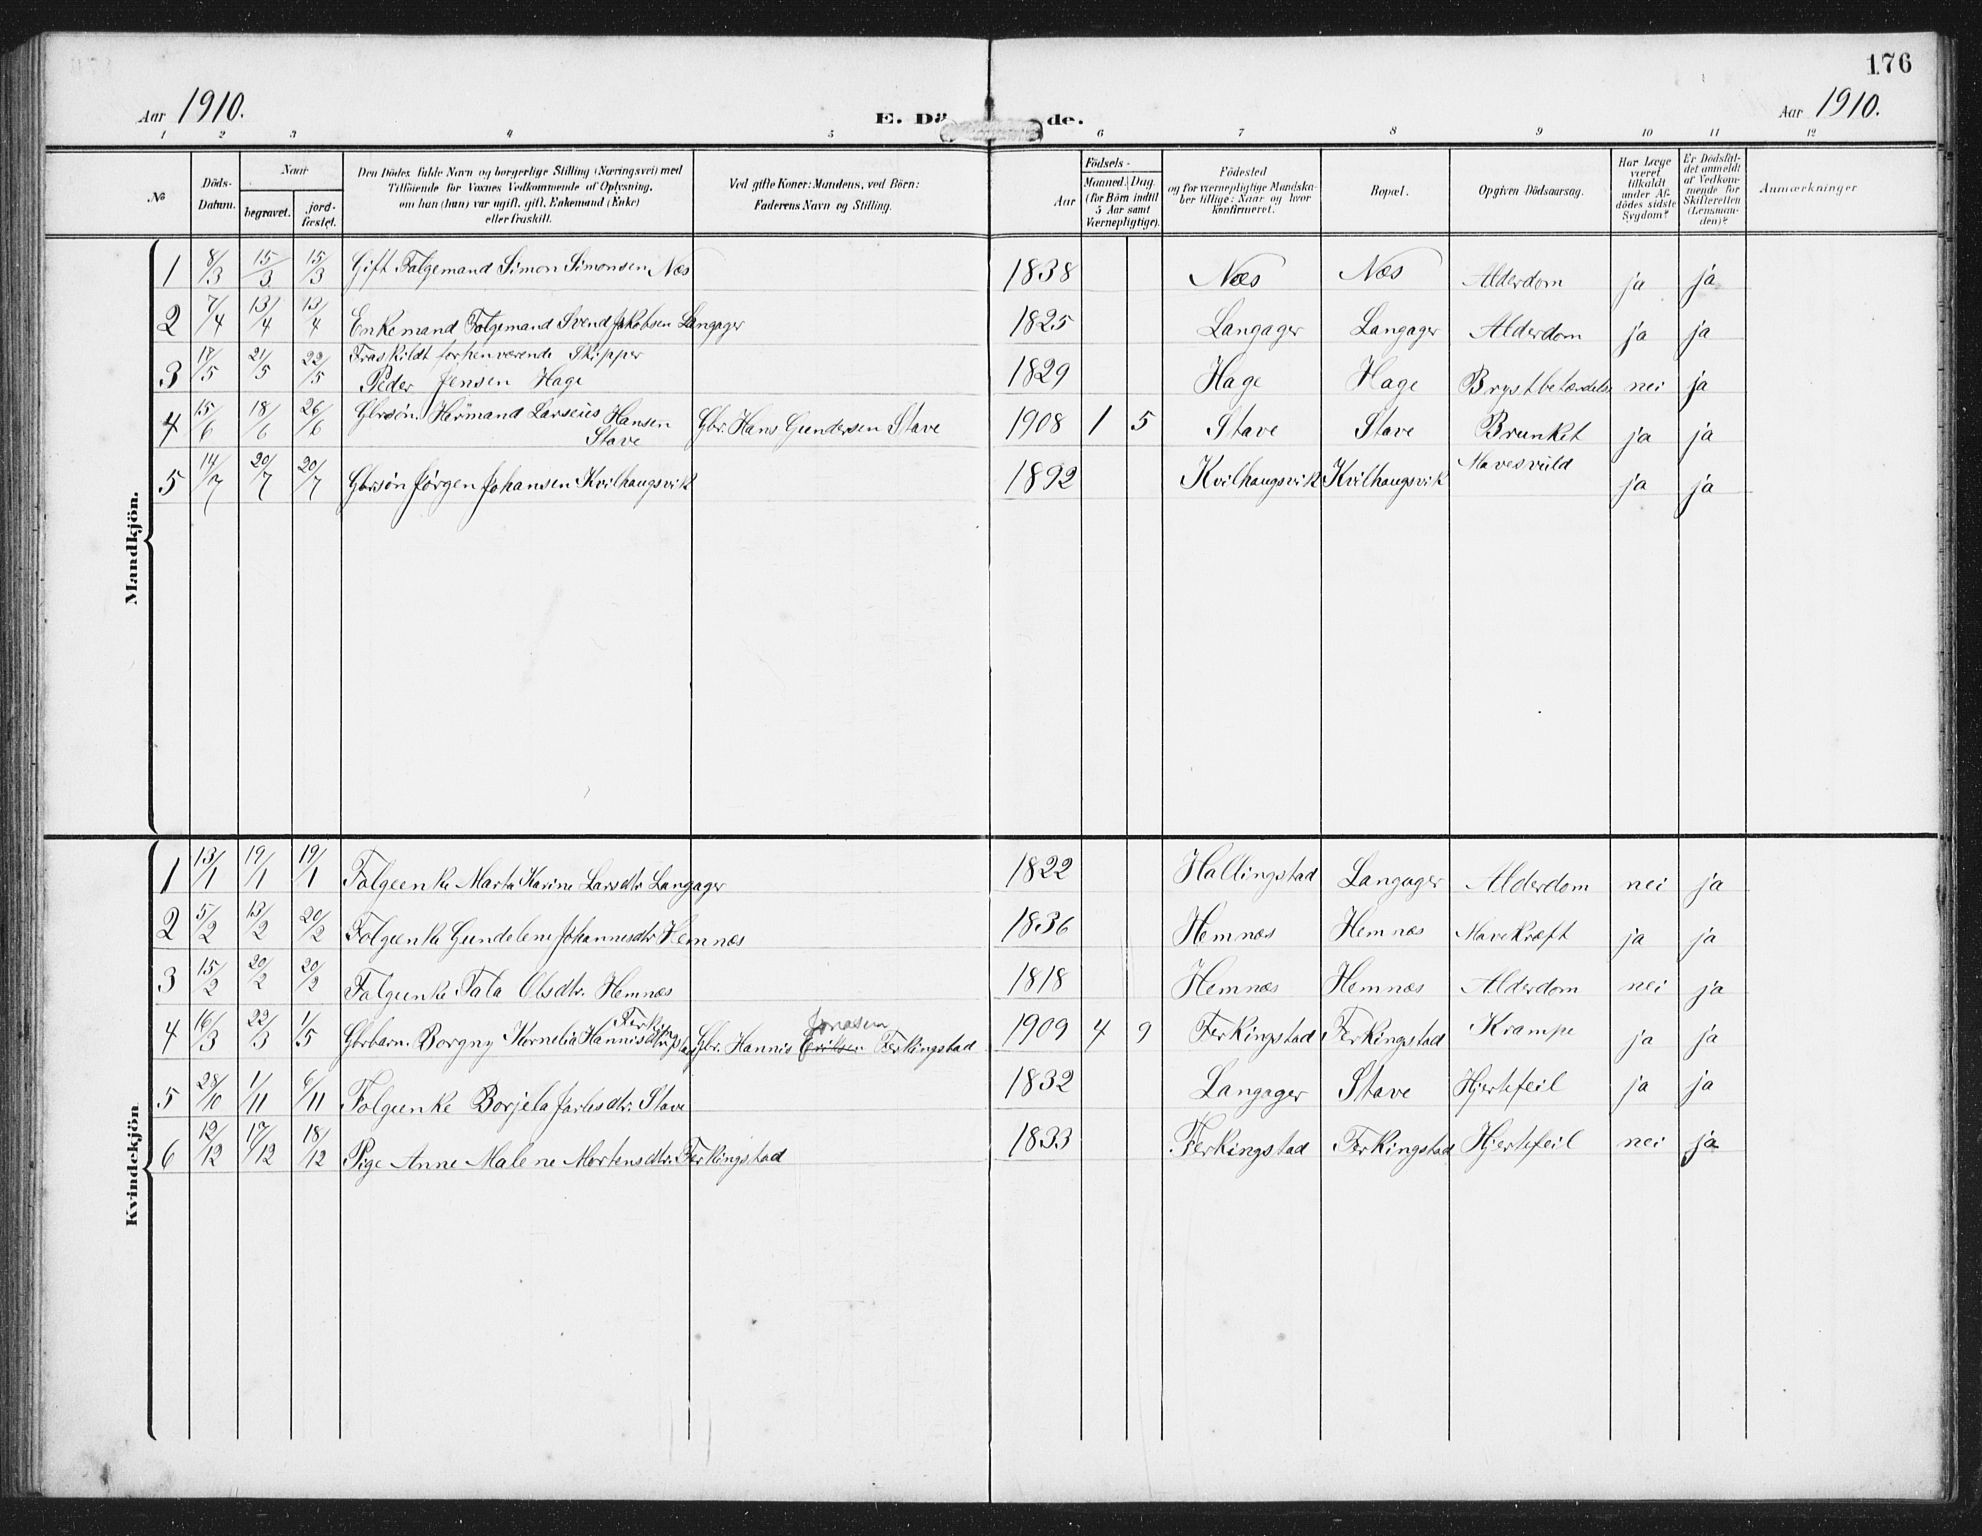 176
Aar 1910. E. Dö de. Aar 1910.
1 2 3 4 5 6 7 8 9 10 11 12
№ | Döds-Datum. | Naar begravet. | jord-fæstet. | Den Dödes fulde Navn og borgerlige Stilling (Næringsvei) med Tilföiende for Voxnes Vedkommende af Oplysning, om han (hun) var ugift, gift, Enkemand (Enke) eller fraskilt. | Ved gifte Koner: Mandens, ved Börn: Faderens Navn og Stilling. | Födsels- Aar | Maaned. Dag. (for Börn indtil 5 Aar samt Værnepligtige). | Födested og for værnepligtige Mandska-ber tillige: Naar og hvor konfirmeret. | Bopæl. | Opgiven Dödsaarsag. | Har Læge været tilkaldt under Af-dödes sidste Sygdom? | Er Dödsfal-det anmeldt af Vedkom-mende for Skifteretten (Lensman-den)? | Anmærkninger
Mandkjön.
1 | 8/3 | 15/3 | 15/3 | Gift Folgemand Simon Simonsen Næs | 1838 | Næs | Næs | Alderdom | ja | ja
2 | 7/4 | 13/4 | 13/4 | Enkemand Folgemand Svend Jakobsen Langager | 1825 | Langager | Langager | Alderdom | ja | ja
3 | 17/5 | 21/5 | 22/5 | Fraskildt forhenværende Skipper Peder Jensen Hage | 1829 | Hage | Hage | Brystbetændelse | nei | ja
4 | 15/6 | 18/6 | 26/6 | Gbrsøn. Harmand Larseus Hansen Stave | Gbr. Hans Gundersen Stave | 1908 | 1 | 5 | Stave | Stave | Brunket | ja | ja
5 | 14/7 | 20/7 | 20/7 | Gbrsøn Jørgen Johansen Kvilhaugsvik | 1892 | Kvilhaugsvik | Kvilhaugsvik | Mavesvuld | ja | ja
Kvindekjön
1 | 13/1 | 19/1 | 19/1 | Folgeenke Marta Karine Larsdtr Langager | 1822 | Hallingstad | Langager | Alderdom | nei | ja
2 | 5/2 | 13/2 | 20/2 | Folgeenke Gundelene Johannesdtr Hemnæs | 1836 | Hemnæs | Hemnæs | Mavekræft | ja | ja
3 | 15/2 | 20/2 | 20/2 | Folgeenke Tala Olsdtr. Hemnæs | 1818 | Hemnæs | Hemnæs | Alderdom | nei | ja
4 | 16/3 | 22/3 | 1/5 | Gbrbarn. Borgny Kornelia Hannisdtr Ferkingstad | Gbr. Hannis Eriksen Jonasen Ferkingstad | 1909 | 4 | 9 | Ferkingstad | Ferkingstad | Krampe | ja | ja
5 | 28/10 | 1/11 | 6/11 | Folgeenke Borjela Jarlesdtr. Stave | 1832 | Langager | Stave | Hjertefeil | ja | ja
6 | 12/12 | 17/12 | 18/12 | Pige Anne Malene Mortensdtr. Ferkingstad | 1833 | Ferkingstad | Ferkingstad | Hjertefeil | nei | ja